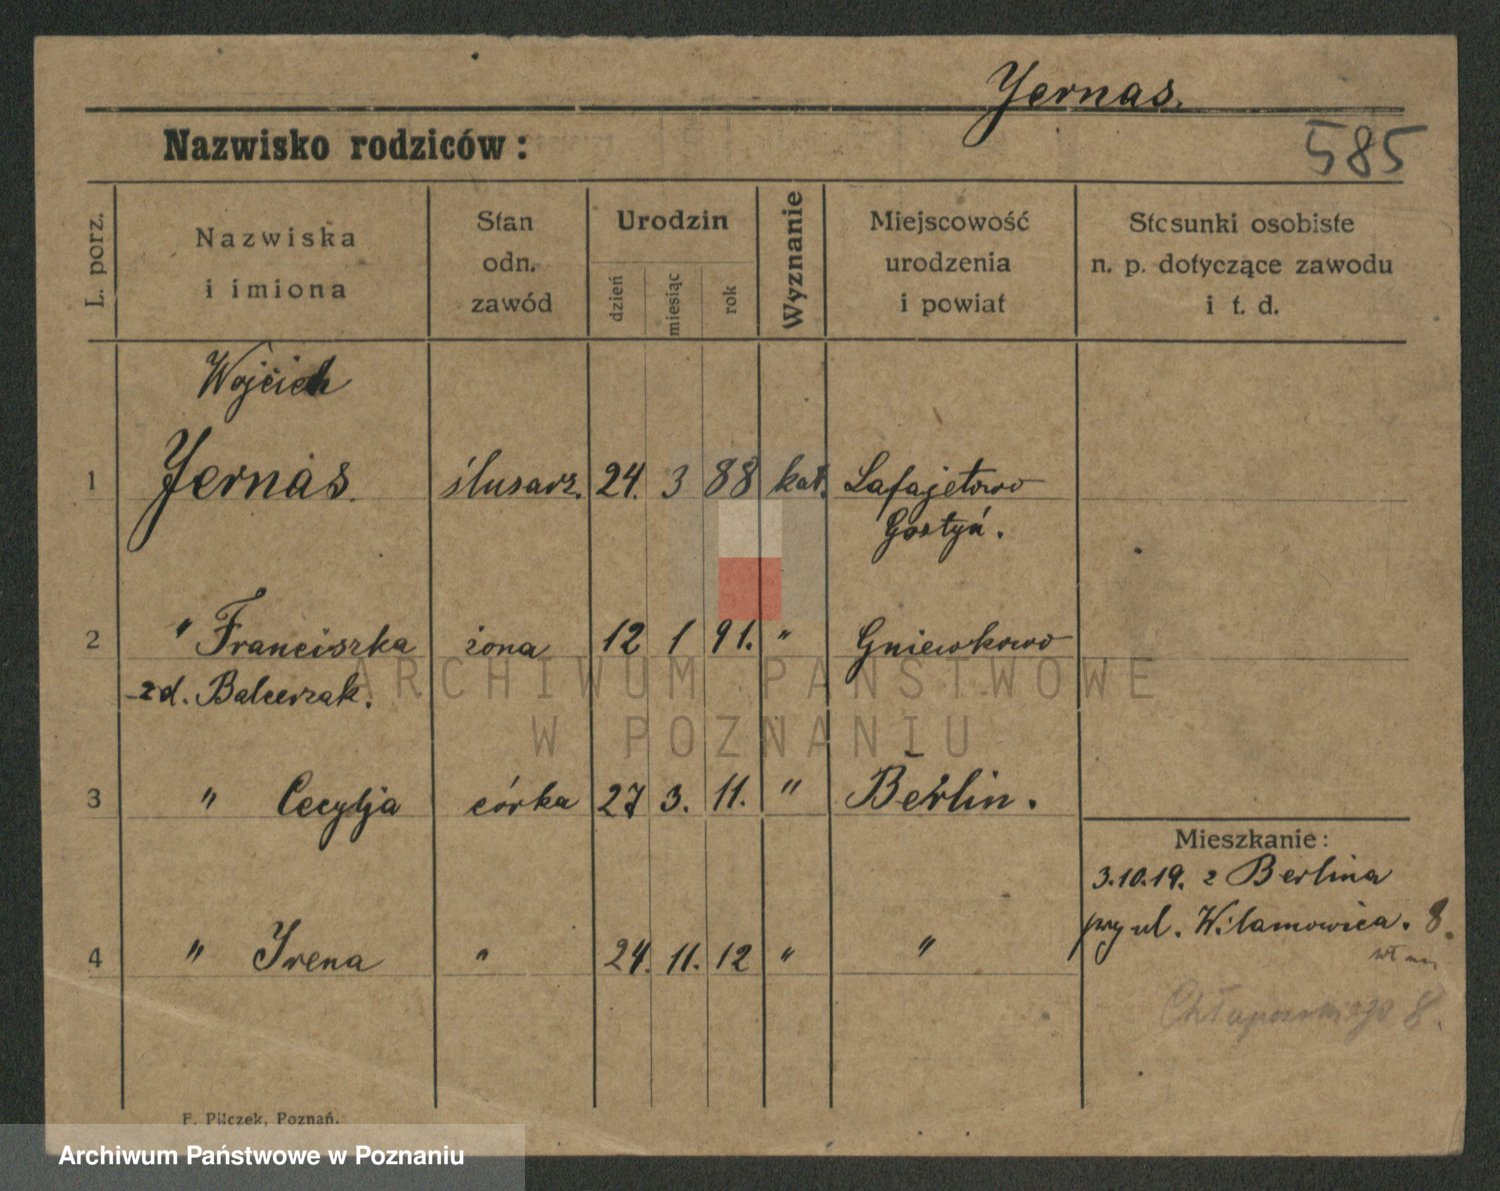 Yernas.
Nazwisko rodziców:
585
L. porz.
Nazwiska
i imiona
Stan
odn.
zawód
Urodzin
dzień
miesiąc
rok
Wyznanie
Miejscowość
urodzenia
i powiat
Stosunki osobiste
n. p. dotyczące zawodu
i t. d.
Wojciech
1 Yernas. ślusarz. 24. 3 88 kat. Lafajetowo
Gostyń.
2 " Franciszka żona 12 1 91. " Gniewkowo
zd. Balcerzak.
3 " Cecylja córka 27 3. 11. " Berlin.
Mieszkanie:
3.10.19. z Berlina
przy ul. Wilamowica. 8.
4 " Irena " 24. 11. 12 " "
Chłapowskiego 8.
F. Pilczek, Poznań.
ARCHIWUM PAŃSTWOWE
W POZNANIU
Archiwum Państwowe w Poznaniu